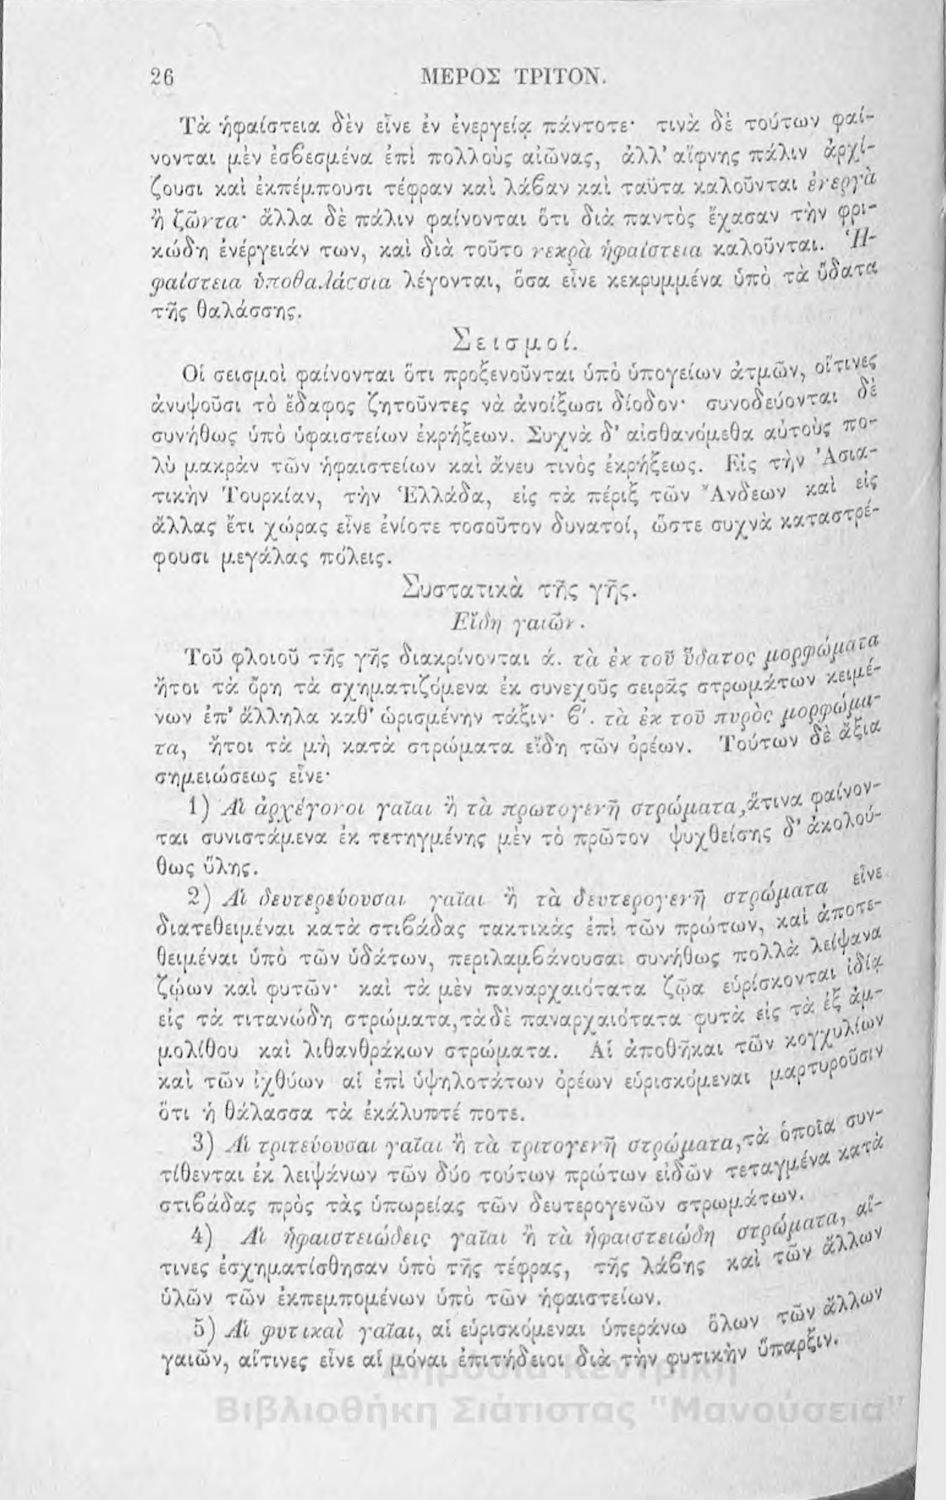 26 ΜΕΡΟΣ ΤΡΙΤΟΝ.
Τὰ ἡφαίστεια δὲν εἶνε ἐν ἐνεργείᾳ πάντοτε· τινὰ δὲ τούτων φαί-
νονται μὲν ἐσβεσμένα ἐπὶ πολλοὺς αἰῶνας, ἀλλ' αἴφνης πάλιν ἀρχί-
ζουσι καὶ ἐκπέμπουσι τέφραν καὶ λάβαν καὶ ταῦτα καλοῦνται ἐνεργὰ
ἢ ζῶντα· ἄλλα δὲ πάλιν φαίνονται ὅτι διὰ παντὸς ἔχασαν τὴν φρι-
κώδη ἐνέργειάν των, καὶ διὰ τοῦτο νεκρὰ ἡφαίστεια καλοῦνται. Ἡ-
φαίστεια ὑποθαλάσσια λέγονται, ὅσα εἶνε κεκρυμμένα ὑπὸ τὰ ὕδατα
τῆς θαλάσσης.
Σεισμοί.
Οἱ σεισμοὶ φαίνονται ὅτι προξενοῦνται ὑπὸ ὑπογείων ἀτμῶν, οἵτινες
ἀνυψοῦσι τὸ ἔδαφος ζητοῦντες νὰ ἀνοίξωσι δίοδον· συνοδεύονται δὲ
συνήθως ὑπὸ ὑφαιστείων ἐκρήξεων. Συχνὰ δ' αἰσθανόμεθα αὐτοὺς πο-
λὺ μακρὰν τῶν ἡφαιστείων καὶ ἄνευ τινὸς ἐκρήξεως. Εἰς τὴν Ἀσια-
τικὴν Τουρκίαν, τὴν Ἑλλάδα, εἰς τὰ πέριξ τῶν Ἄνδεων καὶ εἰς
ἄλλας ἔτι χώρας εἶνε ἐνίοτε τοσοῦτον δυνατοί, ὥστε συχνὰ καταστρέ-
φουσι μεγάλας πόλεις.
Συστατικὰ τῆς γῆς.
Εἴδη γαιῶν.
Τοῦ φλοιοῦ τῆς γῆς διακρίνονται ά. τὰ ἐκ τοῦ ὕδατος μορφώματα
ἤτοι τὰ ὄρη τὰ σχηματιζόμενα ἐκ συνεχοῦς σειρᾶς στρωμάτων κειμέ-
νων ἐπ' ἄλληλα καθ' ὡρισμένην τάξιν· β'. τὰ ἐκ τοῦ πυρὸς μορφώμα-
τα, ἤτοι τὰ μὴ κατὰ στρώματα εἴδη τῶν ὀρέων. Τούτων δὲ ἄξια
σημειώσεως εἶνε·
1) Αἱ ἀρχέγονοι γαῖαι ἢ τὰ πρωτογενῆ στρώματα, ἅτινα φαίνον-
ται συνιστάμενα ἐκ τετηγμένης μὲν τὸ πρῶτον ψυχθείσης δ' ἀκολού-
θως ὕλης.
2) Αἱ δευτερεύουσαι γαῖαι ἢ τὰ δευτερογενῆ στρώματα εἶνε
διατεθειμέναι κατὰ στιβάδας τακτικὰς ἐπὶ τῶν πρώτων, καὶ ἀποτε-
θειμέναι ὑπὸ τῶν ὑδάτων, περιλαμβάνουσαι συνήθως πολλὰ λείψανα
ζῴων καὶ φυτῶν· καὶ τὰ μὲν παναρχαιότατα ζῷα εὑρίσκονται ἰδίᾳ
εἰς τὰ τιτανώδη στρώματα, τὰ δὲ παναρχαιότατα φυτὰ εἰς τὰ ἐξ ἀμ-
μολίθου καὶ λιθανθράκων στρώματα. Αἱ ἀποθῆκαι τῶν κογχυλίων
καὶ τῶν ἰχθύων αἱ ἐπὶ ὑψηλοτάτων ὀρέων εὑρισκόμεναι μαρτυροῦσιν
ὅτι ἡ θάλασσα τὰ ἐκάλυπτέ ποτε.
3) Αἱ τριτεύουσαι γαῖαι ἢ τὰ τριτογενῆ στρώματα, τὰ ὁποῖα συν-
τίθενται ἐκ λειψάνων τῶν δύο τούτων πρώτων εἰδῶν τεταγμένα κατὰ
στιβάδας πρὸς τὰς ὑπωρείας τῶν δευτερογενῶν στρωμάτων.
4) Αἱ ἡφαιστειώδεις γαῖαι ἢ τὰ ἡφαιστειώδη στρώματα, αἵ-
τινες ἐσχηματίσθησαν ὑπὸ τῆς τέφρας, τῆς λάβης καὶ τῶν ἄλλων
ὑλῶν τῶν ἐκπεμπομένων ὑπὸ τῶν ἡφαιστείων.
5) Αἱ φυτικαὶ γαῖαι, αἱ εὑρισκόμεναι ὑπεράνω ὅλων τῶν ἄλλων
γαιῶν, αἵτινες εἶνε αἱ μόναι ἐπιτήδειοι διὰ τὴν φυτικὴν ὕπαρξιν.
Δημόσια Κεντρική
Βιβλιοθήκη Σιάτιστας "Μανούσεια"